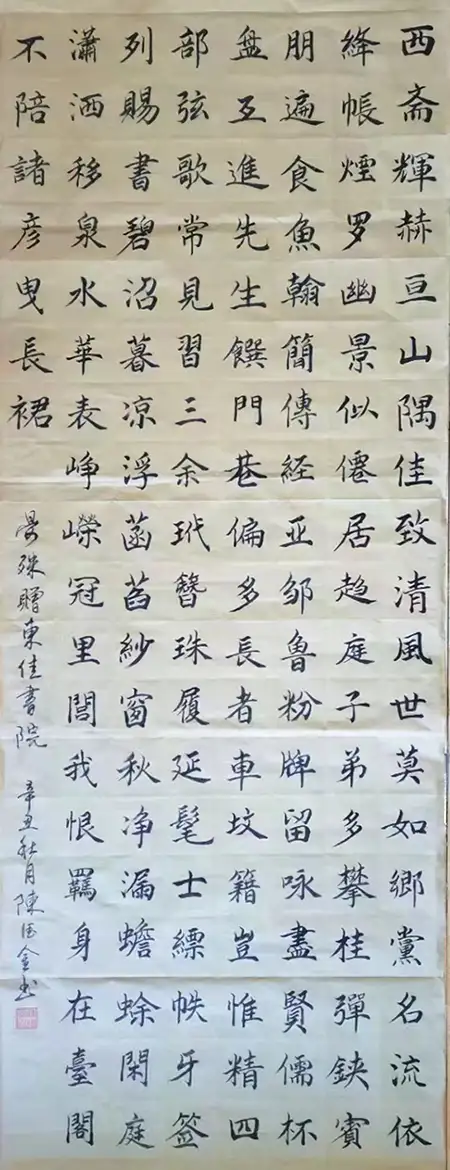 西斋輝赫亘山隅佳致清風世莫如鄉黨名流依
絳帳煙罗幽景似僊居趋庭子弟多攀桂彈鋏賓
朋遍食魚翰簡傳経亚邹魯粉牌留咏盡賢儒杯
盘互進先生饌門巷偏多長者車坟籍豈惟精四
部弦歌常見習三余玳簪珠履延髦士縹帙牙签
列賜書碧沼暮凉浮菡萏紗窗秋净漏蟾蜍閑庭
瀟洒移泉水華表峥嶸冠里閭我恨羈身在臺閣
不陪諸彦曳長裙
晏殊贈東佳書院 辛丑秋月陳德金书